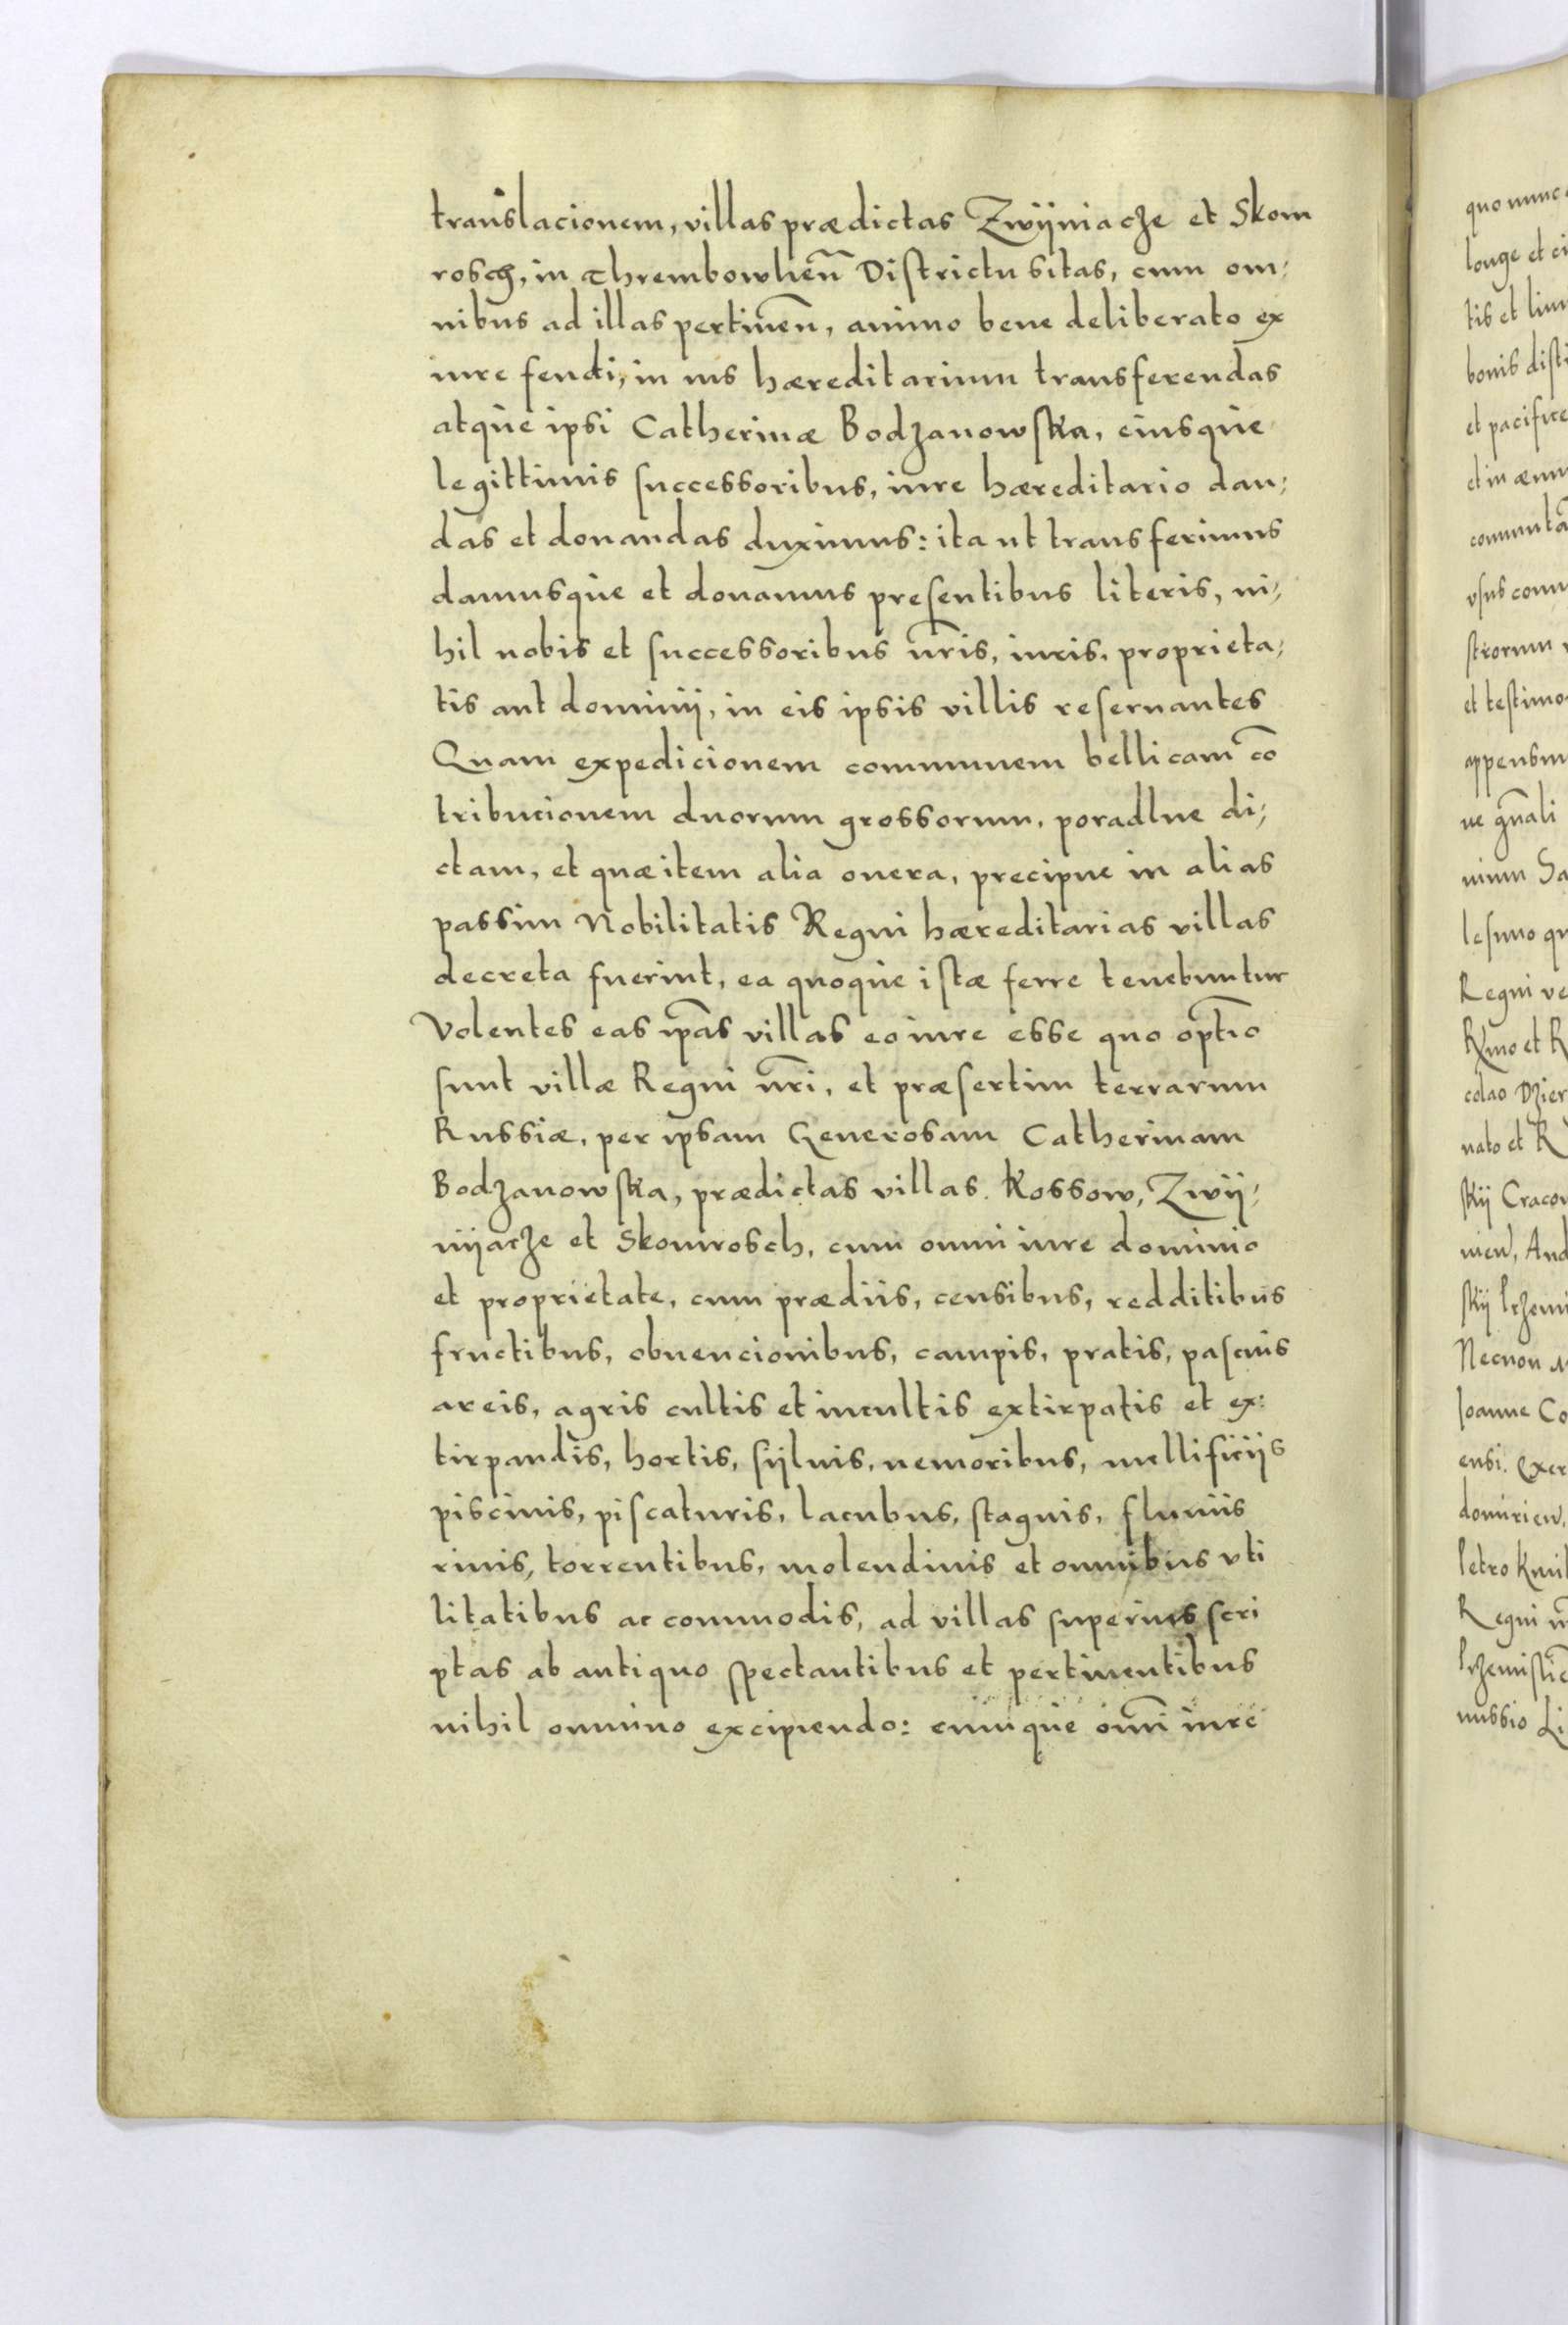 translacionem, villas prædictas Zwÿniacze et Skom
rosch, in Thrembowlien̄ Districtu sitas, cum om⸗
nibus ad illas pertinen̄, animo bene deliberato ex
iure feudi, in ius hæreditarium transferendas
atque ipsi Catherinæ Bodzanowska, eiusque
legittimis successoribus, iure hæreditario dan⸗
das et donandas duximus: ita ut transferimus
damusque et donamus presentibus literis, ni⸗
hil nobis et successoribus nr̄is, iuris, proprieta⸗
tis aut dominij, in eis ipsis villis reseruantes
Quam expedicionem communem bellicam cō
tribucionem duorum grossorum, poradlne di⸗
ctam, et quæ item alia onera, precipue in alias
passim Nobilitatis Regni hæreditarias villas
decreta fuerint, ea quoque istæ ferre tenebuntur
Volentes eas ip̄as villas eo iure esse quo opt̄io
sunt villæ Regni nr̄i, et præsertim terrarum
Russiæ, per ipsam Generosam Catherinam
Bodzanowska, prædictas villas. Kossow, Zwÿ⸗
nijacze et Skomrosch, cum omni iure dominio
et proprietate, cum prædiis, censibus, redditibus
fructibus, obuencionibus, campis, pratis, pascuis
areis, agris cultis et incultis extirpatis et ex:
tirpandis, hortis, sÿluis, nemoribus, mellificijs
piscinis, piscaturis, lacubus, stagnis, fluuiis
riuis, torrentibus, molendinis et omnibus vti
litatibus ac commodis, ad villas superius scri
ptas ab antiquo spectantibus et pertinentibus
nihil omnino excipiendo: cumque om̄i iure
quo nunc
longe et ci
tis et lim
bonis disti
et pacifice
et in æuu
commutā
vsus comm
strorum
et testimo
appensum
ue gn̄ali
nium Sa
lesimo qu
Regni ve
et R
colao Dzier
nato et R
skij Cracou
And
skij
Necnon
Ioanne Co
ensi.
Regni
nussio Li